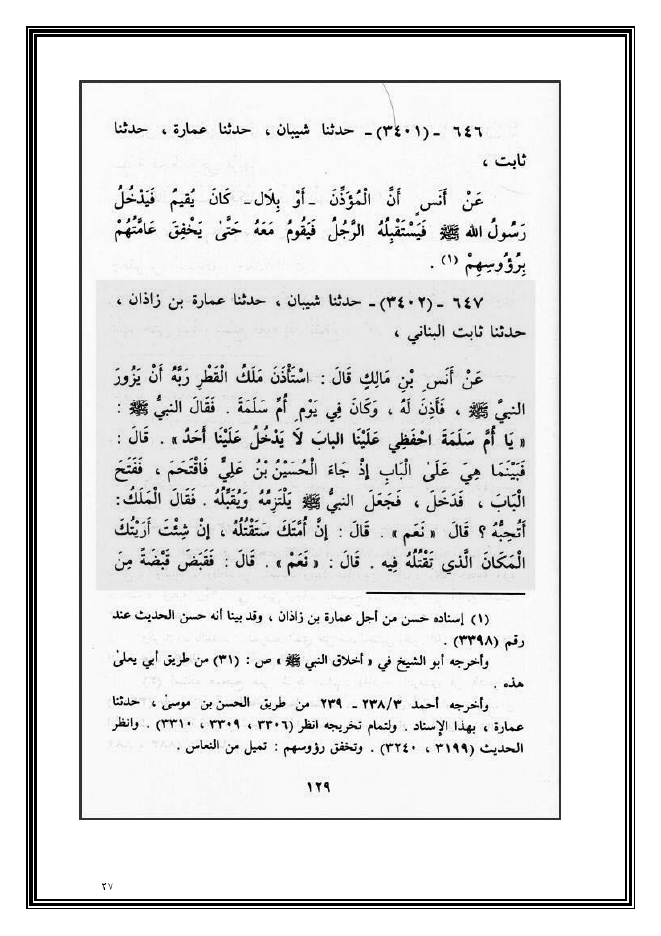 ٦٤٦ ـ (٣٤٠١) ـ حدثنا شيبان ، حدثنا عمارة ، حدثنا
ثابت ،
عَنْ أَنَسٍ أَنَّ الْمُؤَذِّنَ ـ أَوْ بِلَال ـ كَانَ يُقِيمُ فَيَدْخُلُ
رَسُولُ الله ﷺ فَيَسْتَقْبِلُهُ الرَّجُلُ فَيَقُومُ مَعَهُ حَتَّىٰ يَخْفِقَ عَامَّتُهُمْ
بِرُؤُوسِهِمْ (١) .
٦٤٧ ـ (٣٤٠٢) ـ حدثنا شيبان ، حدثنا عمارة بن زاذان ،
حدثنا ثابت البناني ،
عَنْ أَنَسِ بْنِ مَالِكٍ قَالَ : اسْتَأْذَنَ مَلَكُ الْقَطْرِ رَبَّهُ أَنْ يَزُورَ
النبيَّ ﷺ ، فَأَذِنَ لَهُ ، وَكَانَ فِي يَوْمِ أُمِّ سَلَمَةَ . فَقَالَ النبيُّ ﷺ :
« يَا أُمَّ سَلَمَةَ احْفَظِي عَلَيْنَا البابَ لاَ يَدْخُلُ عَلَيْنَا أَحَدٌ » . قَالَ :
فَبَيْنَمَا هِيَ عَلَىٰ الْبَابِ إِذْ جَاءَ الْحُسَيْنُ بْنُ عَلِيٍّ فَاقْتَحَمَ ، فَفَتَحَ
الْبَابَ ، فَدَخَلَ ، فَجَعَلَ النبيُّ ﷺ يَلْتَزِمُهُ وَيُقَبِّلُهُ . فَقَالَ الْمَلَكُ :
أَتُحِبُّهُ ؟ قَالَ « نَعَم » . قَالَ : إِنَّ أُمَّتَكَ سَتَقْتُلُهُ ، إِنْ شِئْتَ أَرَيْتُكَ
الْمَكَانَ الَّذي تَقْتُلُهُ فِيه . قَالَ : « نَعَمْ » . قَالَ : فَقَبَضَ قَبْضَةً مِنَ
(١) إسناده حسن من أجل عمارة بن زاذان ، وقد بينا أنه حسن الحديث عند
رقم (٣٣٩٨) .
وأخرجه أبو الشيخ في « أخلاق النبي ﷺ » ص : (٣١) من طريق أبي يعلىٰ
هذه .
وأخرجه أحمد ٢٣٨/٣ ـ ٢٣٩ من طريق الحسن بن موسىٰ ، حدثنا
عمارة ، بهذا الإسناد . ولتمام تخريجه انظر (٣٣٠٦ ، ٣٣٠٩ ، ٣٣١٠) . وانظر
الحديث (٣١٩٩ ، ٣٢٤٠) . وتخفق رؤوسهم : تميل من النعاس .
١٢٩
٢٧